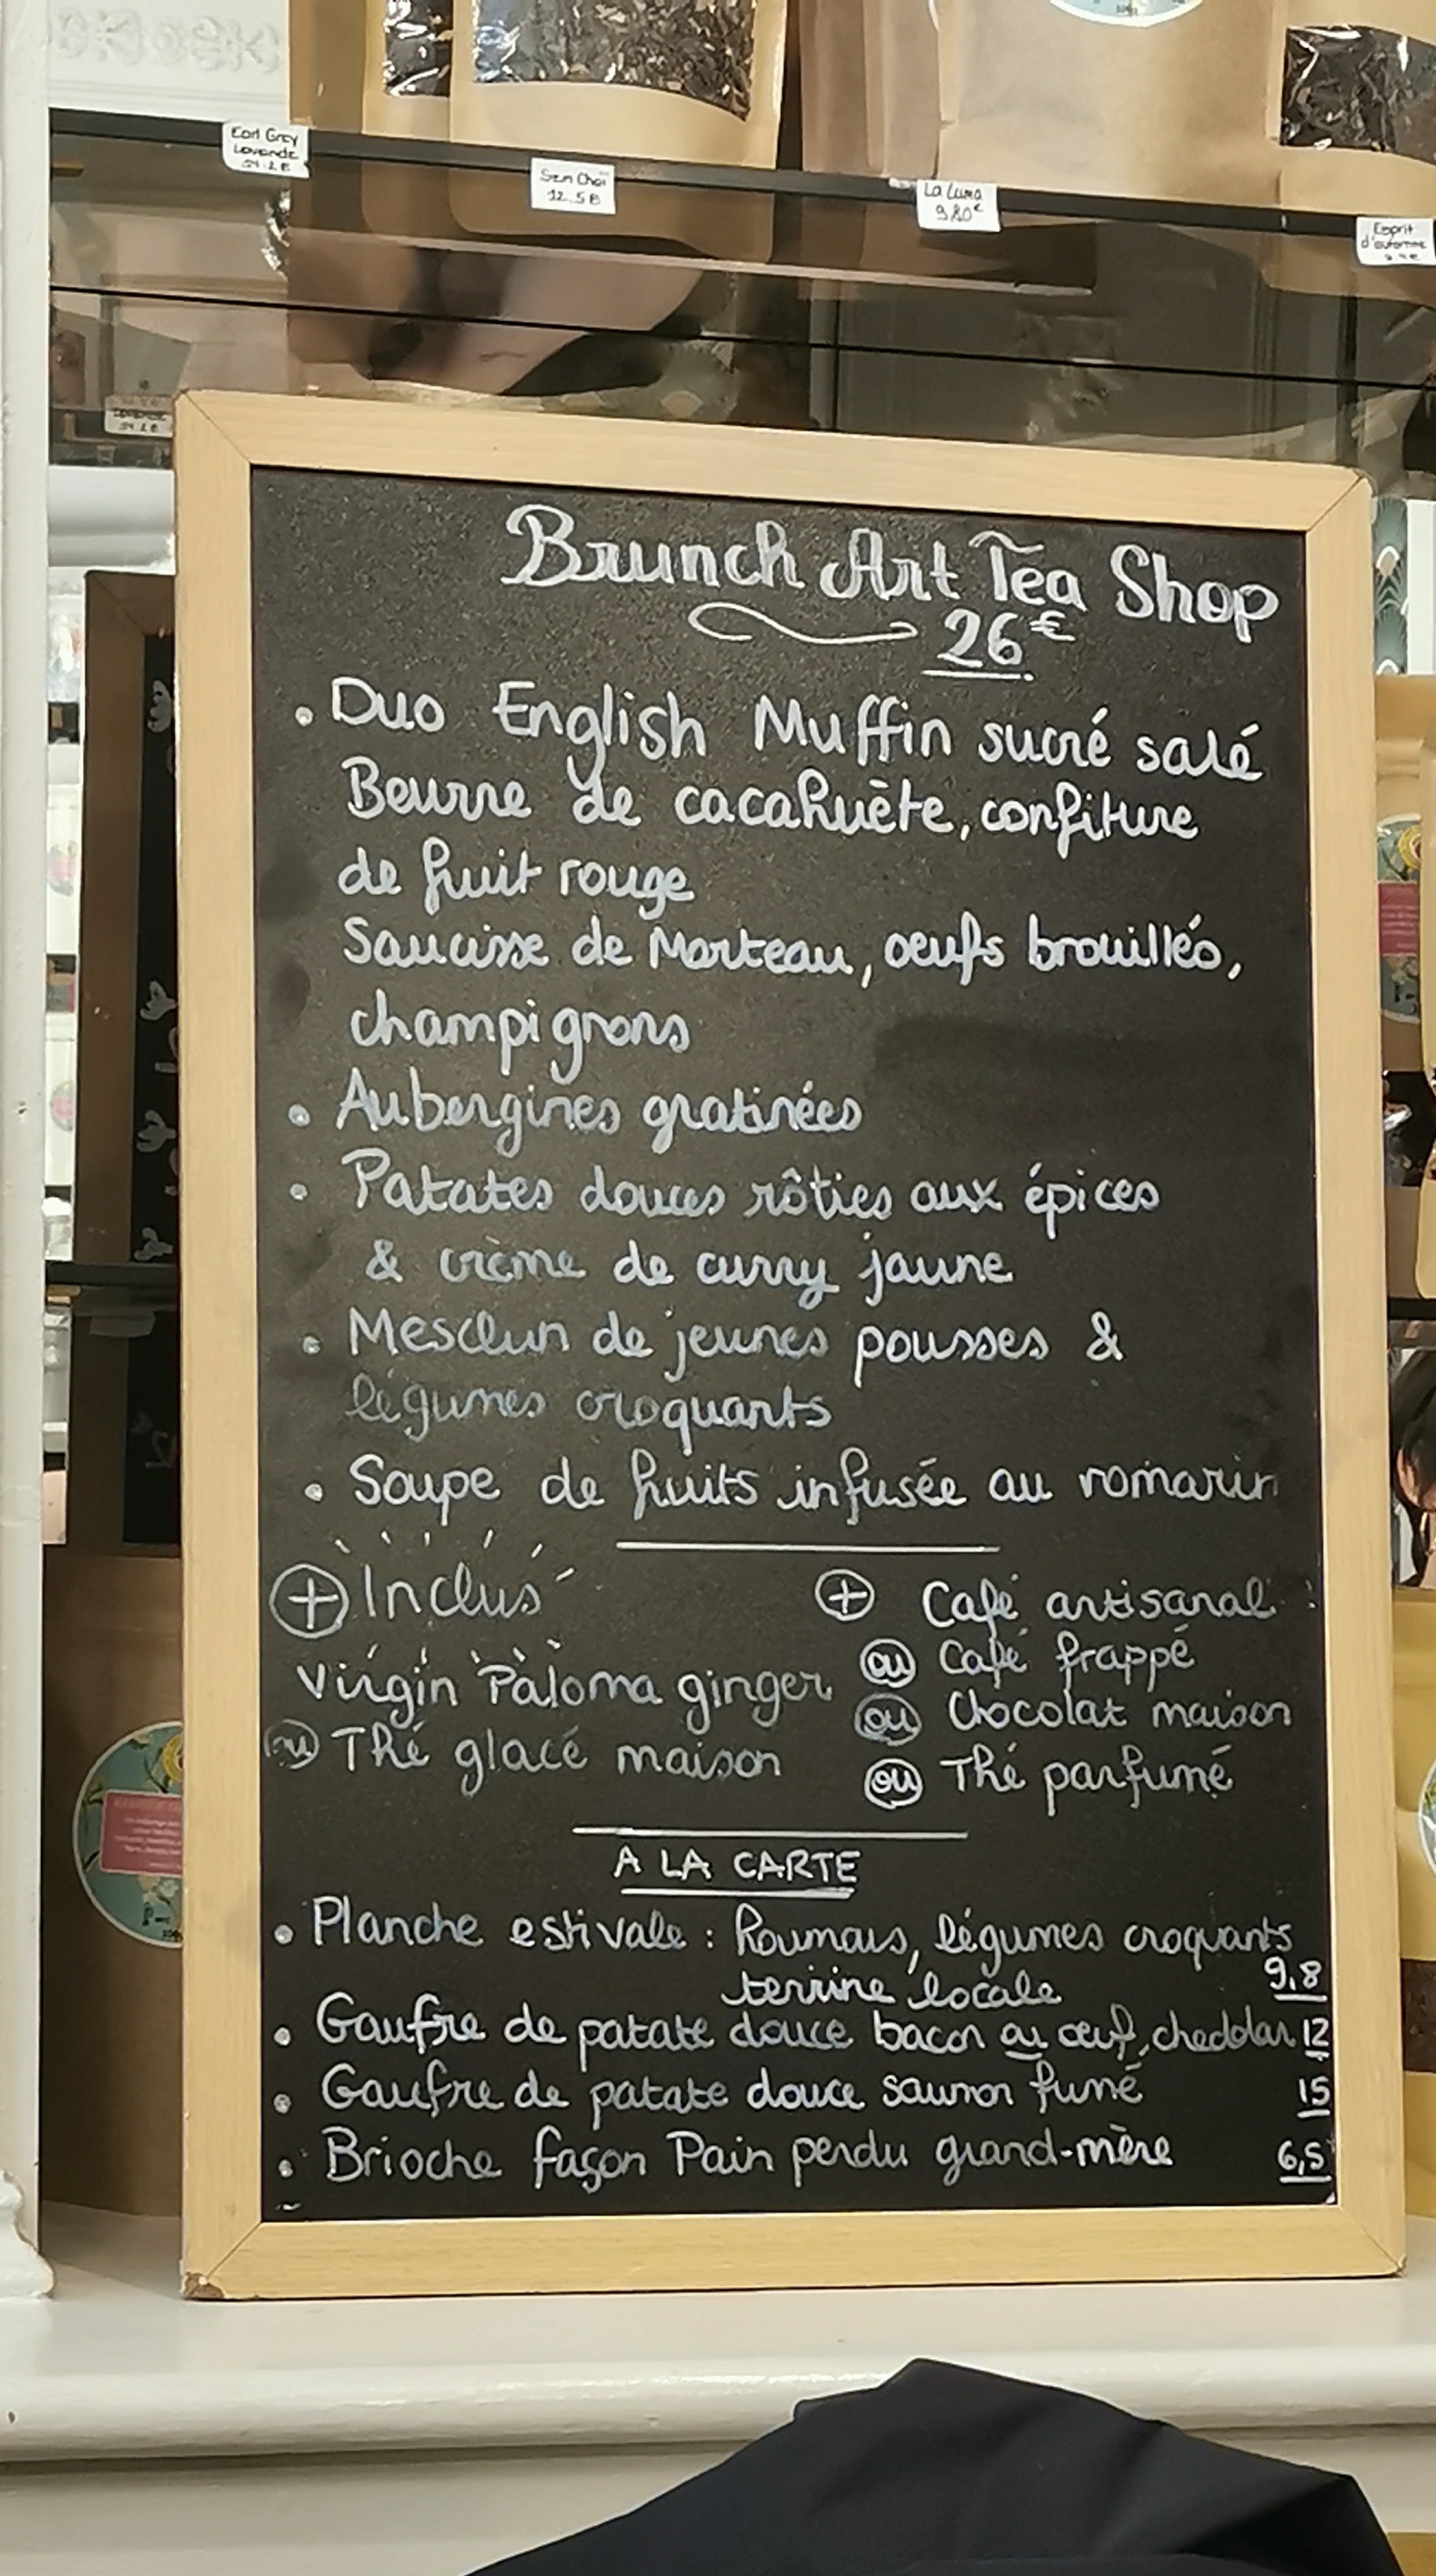 Earl Grey
Lavande
Sen Cha
La Luna
9.80€
Esprit
d'automne
Brunch Art Tea Shop
26€
. Duo English Muffin sucré salé
Beurre de cacahuète, confiture
de fruit rouge
Saucisse de Morteau, oeufs brouillés,
champignons
• Aubergines gratinées
• Patates douces rôties aux épices
& crème de curry jaune
• Mesclun de jeunes pousses &
légumes croquants
• Soupe de fruits infusée au romarin
+ Inclus
Virgin Paloma ginger
ou Thé glacé maison
+ Café artisanal
ou Café frappé
ou Chocolat maison
ou Thé parfumé
A LA CARTE
• Planche estivale : houmous, légumes croquants
terrine locale 9,8
• Gaufre de patate douce bacon ou œuf, cheddar 12
• Gaufre de patate douce saumon fumé 15
• Brioche façon Pain perdu grand-mère 6,5